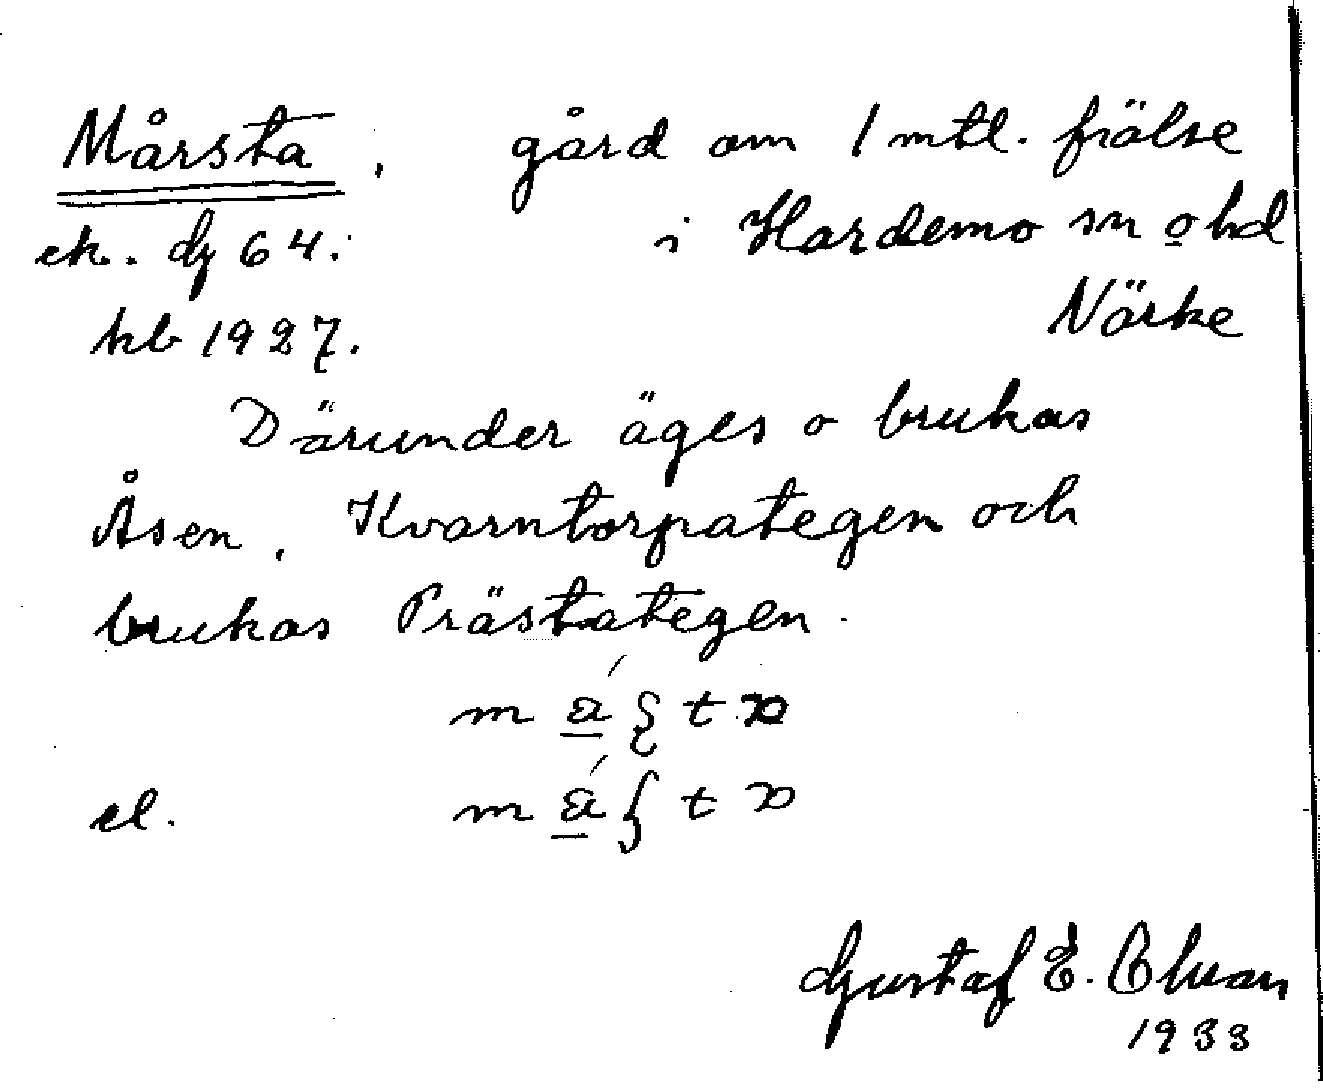 Mårsta, gård om 1 mtl. frälse
ek. dz 64. i Hardemo sn o hd
kb 1927. Närke
Därunder äges o brukas
Åsen, Kvarntorpategen och
brukas Prästategen.
el.
Gustaf E.
1933